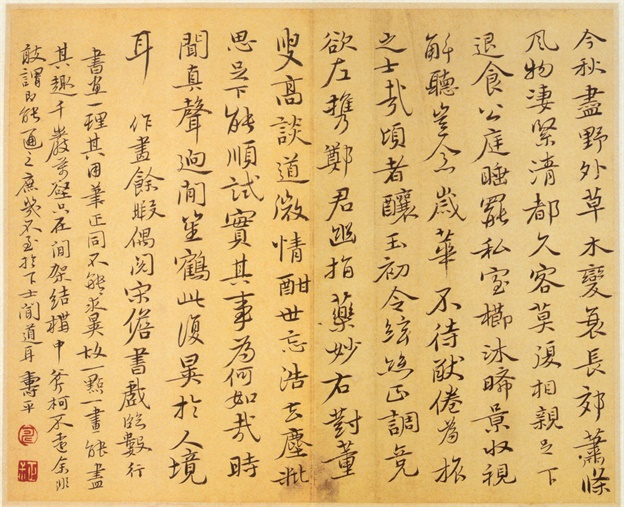 今秋盡野外草木變衰長郊蕭條
風物淒緊清都久客莫復相親足下
退食公庭睡罷私室櫛沐晞景收視
解聽豈念歲華不待猒倦為旅
之士哉頃者釀玉初令絃絲正調竟
欲左攜鄭君幽指藥妙右對董
叟高談道微情酣世忘浩去塵粃
思足下能順試實其事為何如哉時
聞真聲迥間笙鶴此復異於人境
耳 作畫餘暇偶閲宋儋書戲臨數行
書画一理其用筆正同不能求異故一點一畫能盡
其趣千巖萬壑只在間架結構中斧柯不遠余非
敢謂即能通之庶幾不至於下士聞道耳 壽平